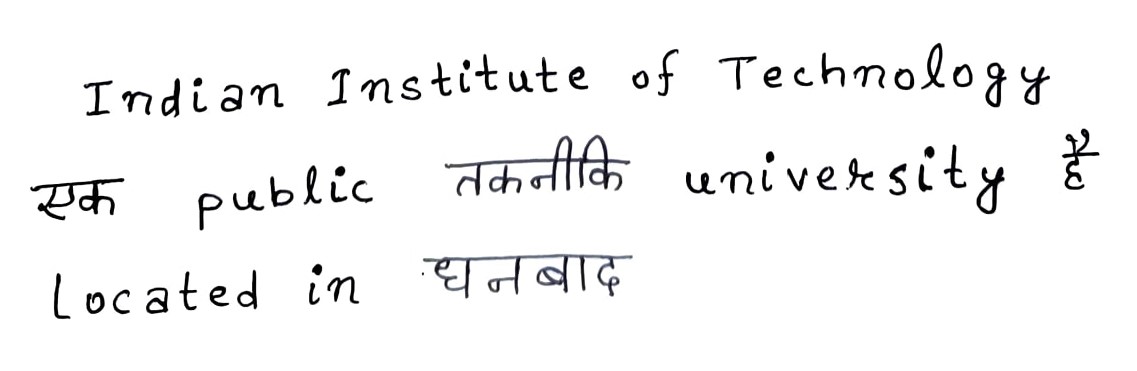 Indian Institute of Technology
एक public तकनीकि university है
Located in धनबाद